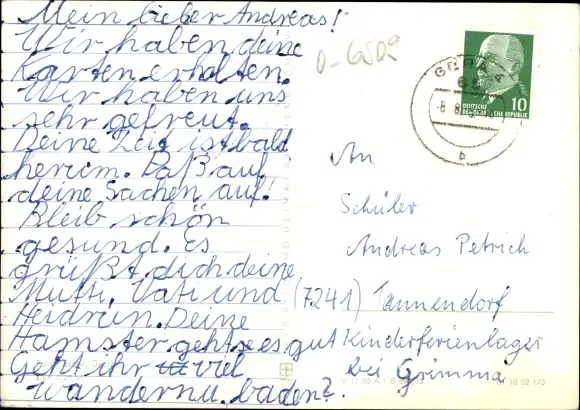 Mein lieber Andreas!
Wir haben deine
Karten erhalten.
Wir haben uns
sehr gefreut.
Deine Zeit ist bald
herum. Paß auf
deine Sachen auf!
Bleib schön
gesund. Es
grüßt dich deine
Mutti, Vati und
Heidrun. Deine
Hamster geht es gut
Geht ihr viel
wandern u. baden?
GERA
DEUTSCHE
DEMOKRATISCHE REPUBLIK
10
b
An
Schüler
Andreas Petrich
(7241) Tannendorf
Kinderferienlager
bei Grimma